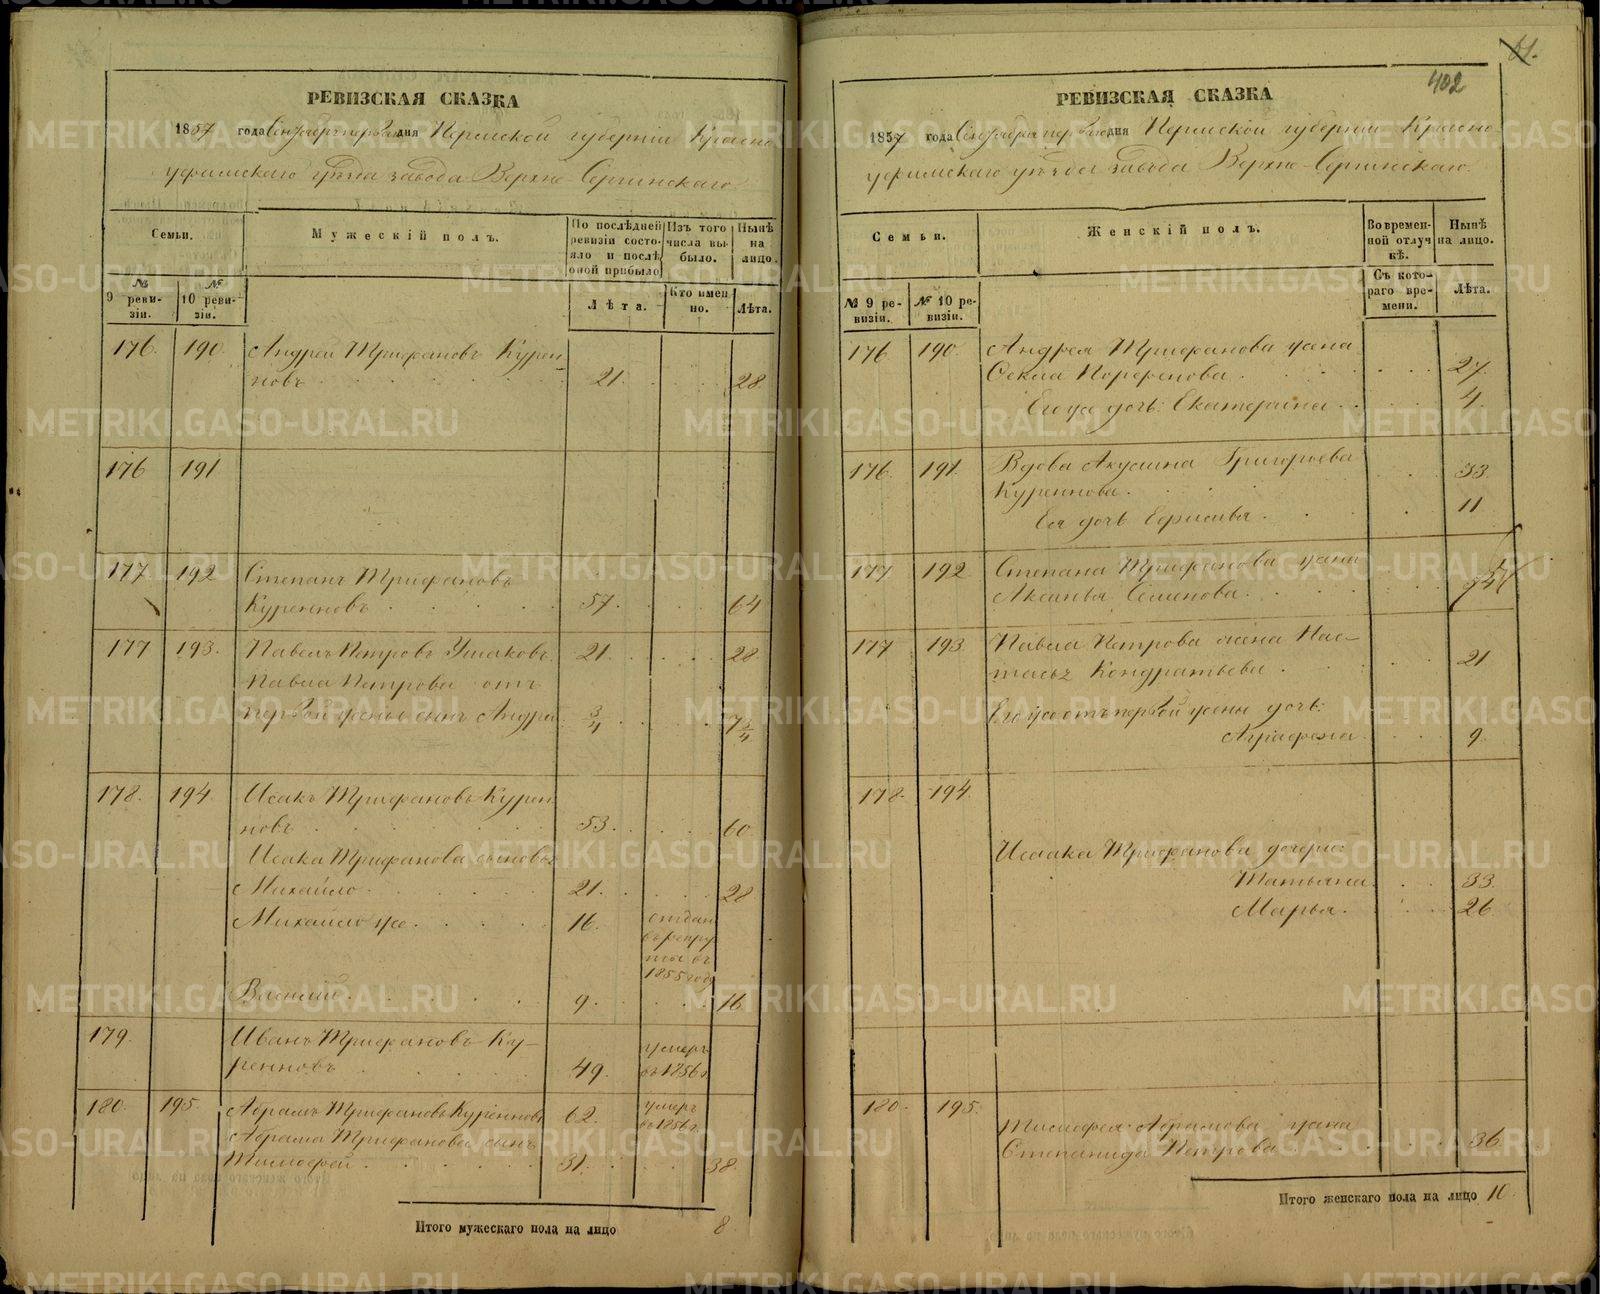 РЕВИЗСКАЯ СКАЗКА
1857 года Сентября первого дня Пермской губернии Красно
уфимского уѣзда завода Верхне-Сергинскаго
Семьи.
Мужескій полъ.
По послѣдней ревизіи состояло и послѣ оной прибыло
Изъ того числа выбыло.
Нынѣ на лицо.
№ 9 ревизіи.
№ 10 ревизіи.
Лѣта.
Кто именно.
Лѣта.
176. 190. Андрей Трифановъ Курен-
новъ 21. 28
176 191
177 192 Степанъ Трифановъ
Куренновъ 57. 64
177 193. Павелъ Петровъ Ушаковъ 21. 28
Павла Петрова отъ
первой жены сынъ Андрей 3/4 7 3/4
178. 194. Исакъ Трифановъ Курен
новъ 53. 60
Исака Трифанова сыновья
Михайло 21. 28
Михайло же 16. отдан
въ рекру
ты въ
1855 год
Василий 9. 16
179. Иванъ Трифановъ Ку-
ренновъ 49. умеръ
въ 1856 г.
180. 195. Абрамъ Трифановъ Куренновъ 62. умеръ
въ 1856 г.
Абрама Трифанова сынъ
Тимофей 31. 38
Итого мужескаго пола на лицо 8
61.
402
РЕВИЗСКАЯ СКАЗКА
1857 года Сентября первого дня Пермской губернии Красно
уфимского уѣзда завода Верхне-Сергинскаго
Семьи.
Женскій полъ.
Во временной отлучкѣ.
Нынѣ на лицо.
№ 9 ревизіи.
№ 10 ревизіи.
Съ котораго времени.
Лѣта.
176 190. Андрея Трифанова жена
Фекла Порфенова 27.
Его же дочь: Екатерина 4.
176. 191. Вдова Акулина Григорьева 33.
Куреннова.
Ея дочь 11
177 192. Степана Трифанова жена
Аксинья Семенова
177 193. Павла Петрова жена Нас-
тасья Кондратьева 21
Его же отъ первой жены дочь:
Аграфена 9.
178. 194.
Исаака Трифанова дочери:
Татьяна 33.
Марья 26
180. 195. Тимофея Абрамова жена
Степанида Петрова 36.
Итого женскаго пола на лицо 10.
METRIKI.GASO-URAL.RU